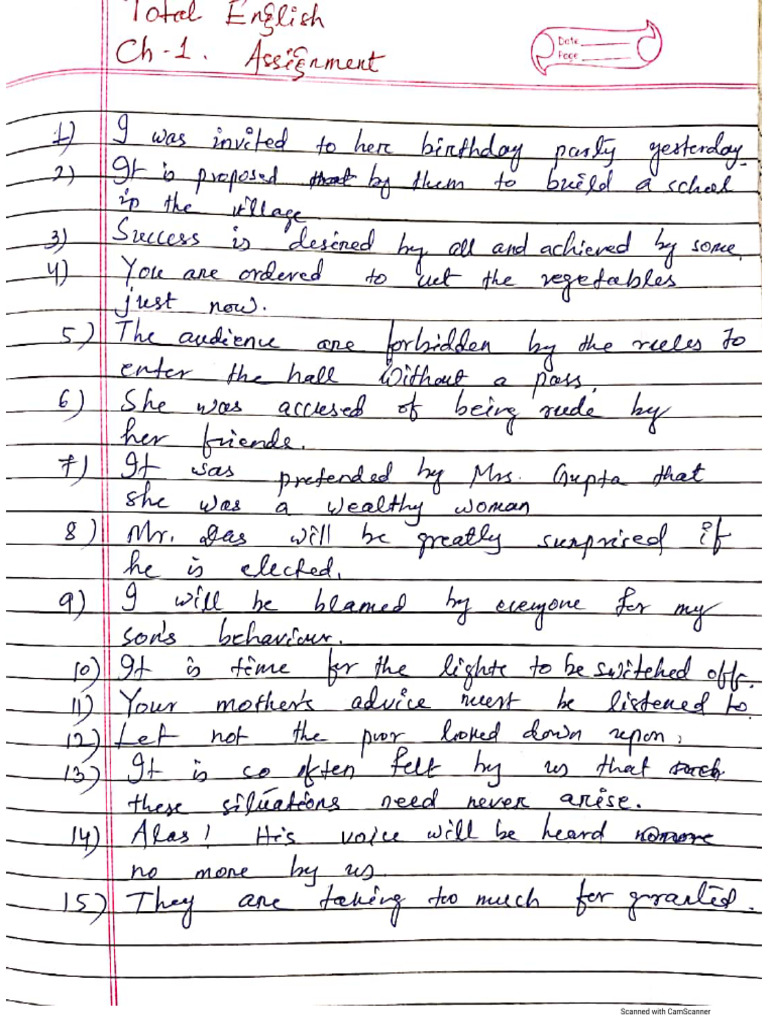 Total English
Ch-1. Assignment
Date
Page
1) I was invited to her birthday party yesterday.
2) It is proposed that by them to build a school
in the village
3) Success is desired by all and achieved by some.
4) You are ordered to cut the vegetables
just now.
5) The audience are forbidden by the rules to
enter the hall without a pass.
6) She was accused of being rude by
her friends.
7) It was pretended by Mrs. Gupta that
she was a wealthy woman
8) Mr. Das will be greatly surprised if
he is elected.
9) I will be blamed by everyone for my
son's behaviour.
10) It is time for the lights to be switched off.
11) Your mother's advice must be listened to
12) Let not the poor looked down upon.
13) It is so often felt by us that such
these situations need never arise.
14) Alas! His voice will be heard nomore
no more by us
15) They are taking too much for granted.
Scanned with CamScanner